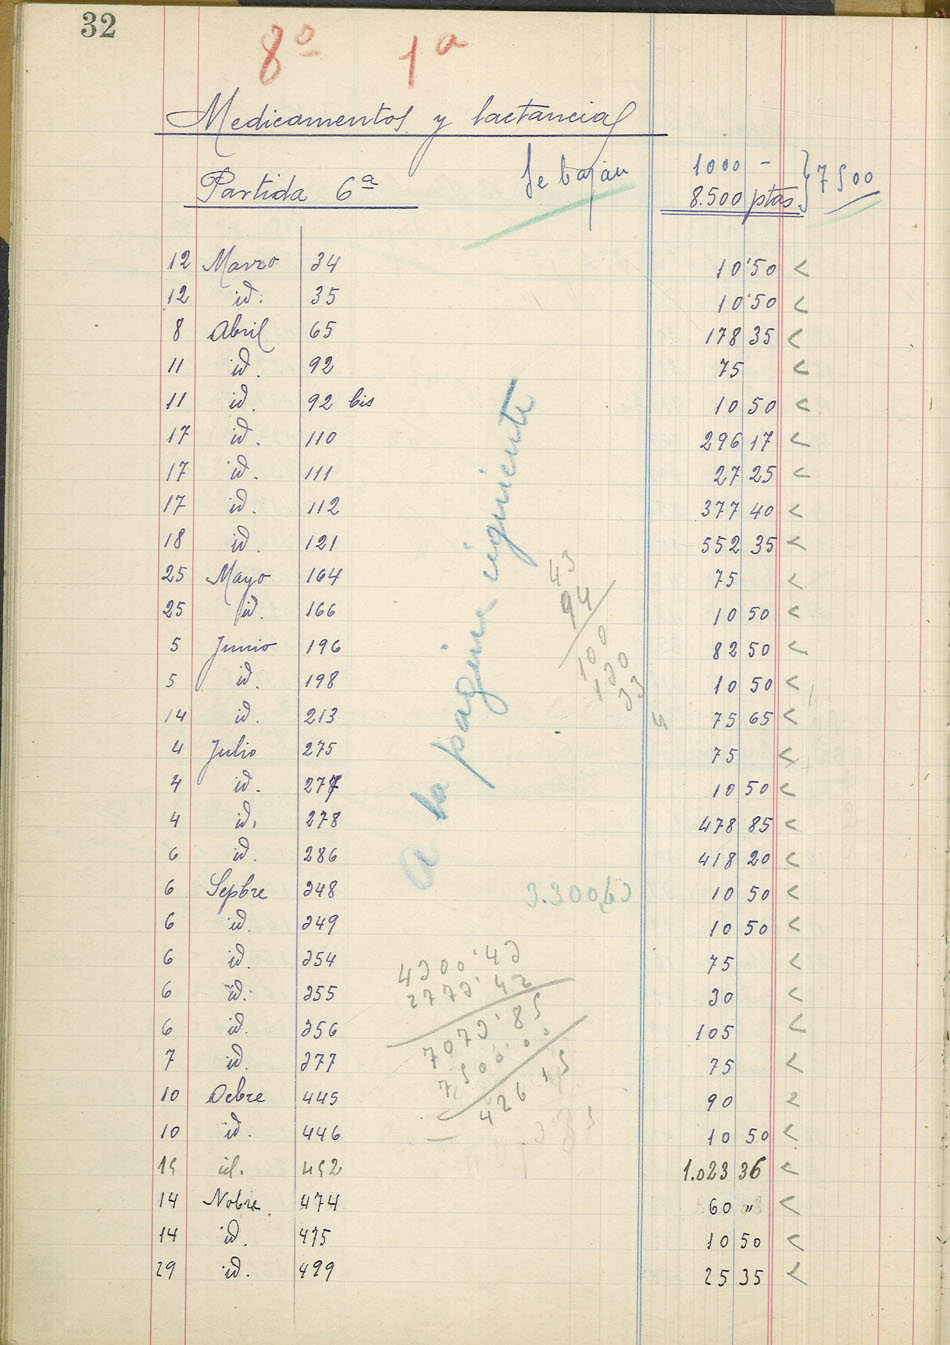 32
8º 1ª
Medicamentos y lactancia
Partida 6ª
Se bajan
1000 -
8.500 ptas } 7500
12 Marzo 34 10'50 <
12 id. 35 10'50 <
8 Abril 65 178 35 <
11 id. 92 75 <
11 id. 92 bis 10 50 <
17 id. 110 296 17 <
17 id. 111 27 25 <
17 id. 112 377 40 <
18 id. 121 552 35 <
25 Mayo 164 75 <
25 id. 166 10 50 <
5 Junio 196 82 50 <
5 id. 198 10 50 <
14 id. 213 75 65 <
4 Julio 275 75 <
4 id. 277 10 50 <
4 id. 278 478 85 <
6 id. 286 418 20 <
6 Sepbre 348 10 50 <
6 id. 349 10 50 <
6 id. 354 75 <
6 id. 355 30 <
6 id. 356 105 <
7 id. 377 75 <
10 Ocbre 445 90 <
10 id. 446 10 50 <
15 id. 452 1.023 36 <
14 Nobre 474 60 " <
14 id. 475 10 50 <
29 id. 499 25 35 <
a la pagina siguiente
43
94
100
130
33
4
3.300,43
4300'43
2772'42
7073'85
7500'00
426 15